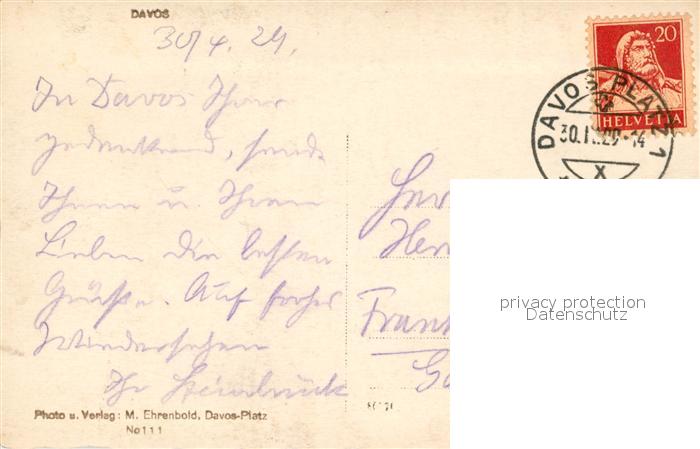 DAVOS
30/4. 29.
In Davos Ihrer
gedenkend, sende
Ihnen u. Ihren
Lieben die besten
Grüße. Auf frohes
Wiedersehen
Ihr
20
HELVETIA
DAVOS PLATZ 1
30.IV.29-14
X
Her
Frank
Photo u. Verlag: M. Ehrenbold, Davos-Platz
No 111
privacy protection
Datenschutz